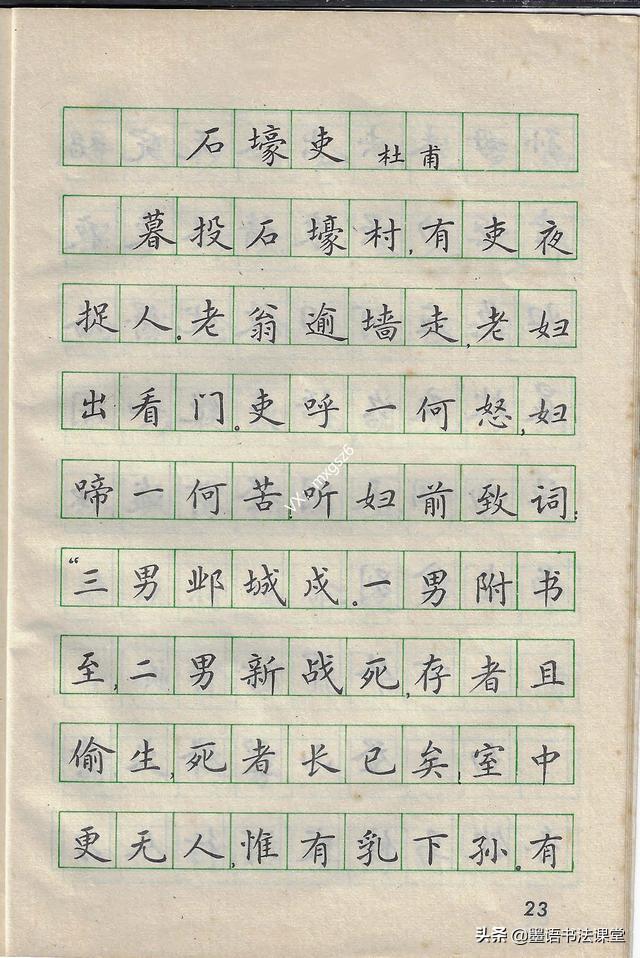 石壕吏 杜甫
暮投石壕村,有吏夜
捉人。老翁逾墙走,老妇
出看门。吏呼一何怒,妇
啼一何苦,听妇前致词:
“三男邺城戍。一男附书
至,二男新战死,存者且
偷生,死者长已矣,室中
更无人,惟有乳下孙。有
23
vx: mxgsz6
头条 @墨语书法课堂